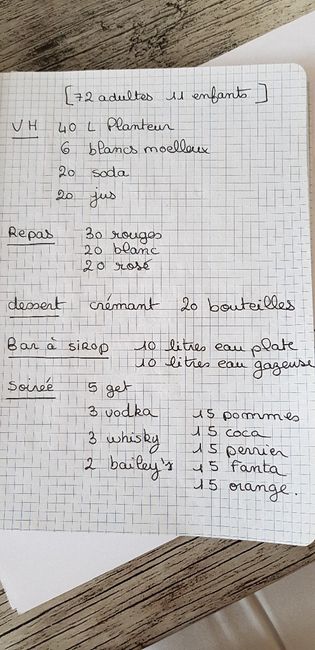 [72 adultes 11 enfants]
VH 40 L Planteur
6 blancs moelleux
20 soda
20 jus
Repas 30 rouges
20 blanc
20 rosé
dessert crémant 20 bouteilles
Bar à sirop 10 litres eau plate
10 litres eau gazeuse
Soirée 5 get
3 vodka 15 pommes
3 whisky 15 coca
2 bailey's 15 perrier
15 fanta
15 orange.